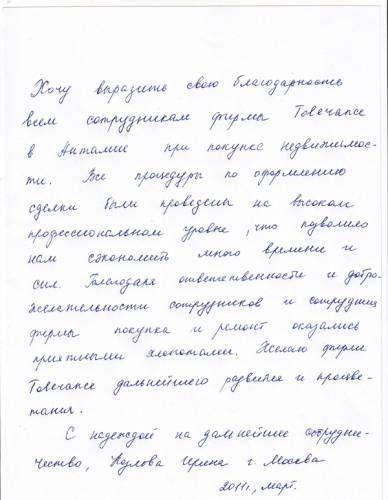 Хочу выразить свою благодарность
всем сотрудникам фирмы Товечапсе
в Анталии при покупке недвижимос-
ти. Все процедуры по оформлению
сделки были проведены на высоком
профессиональном уровне, что позволило
нам сэкономить много времени и
сил. Благодаря ответственности и добро-
желательности сотрудников и сотрудниц
фирмы покупка и ремонт оказались
приятными хлопотами. Желаю фирме
Товечапсе дальнейшего развития и процве-
тания.
С надеждой на дальнейшее сотрудни-
чество, Козлова Ирина г. Москва
2011г., март.